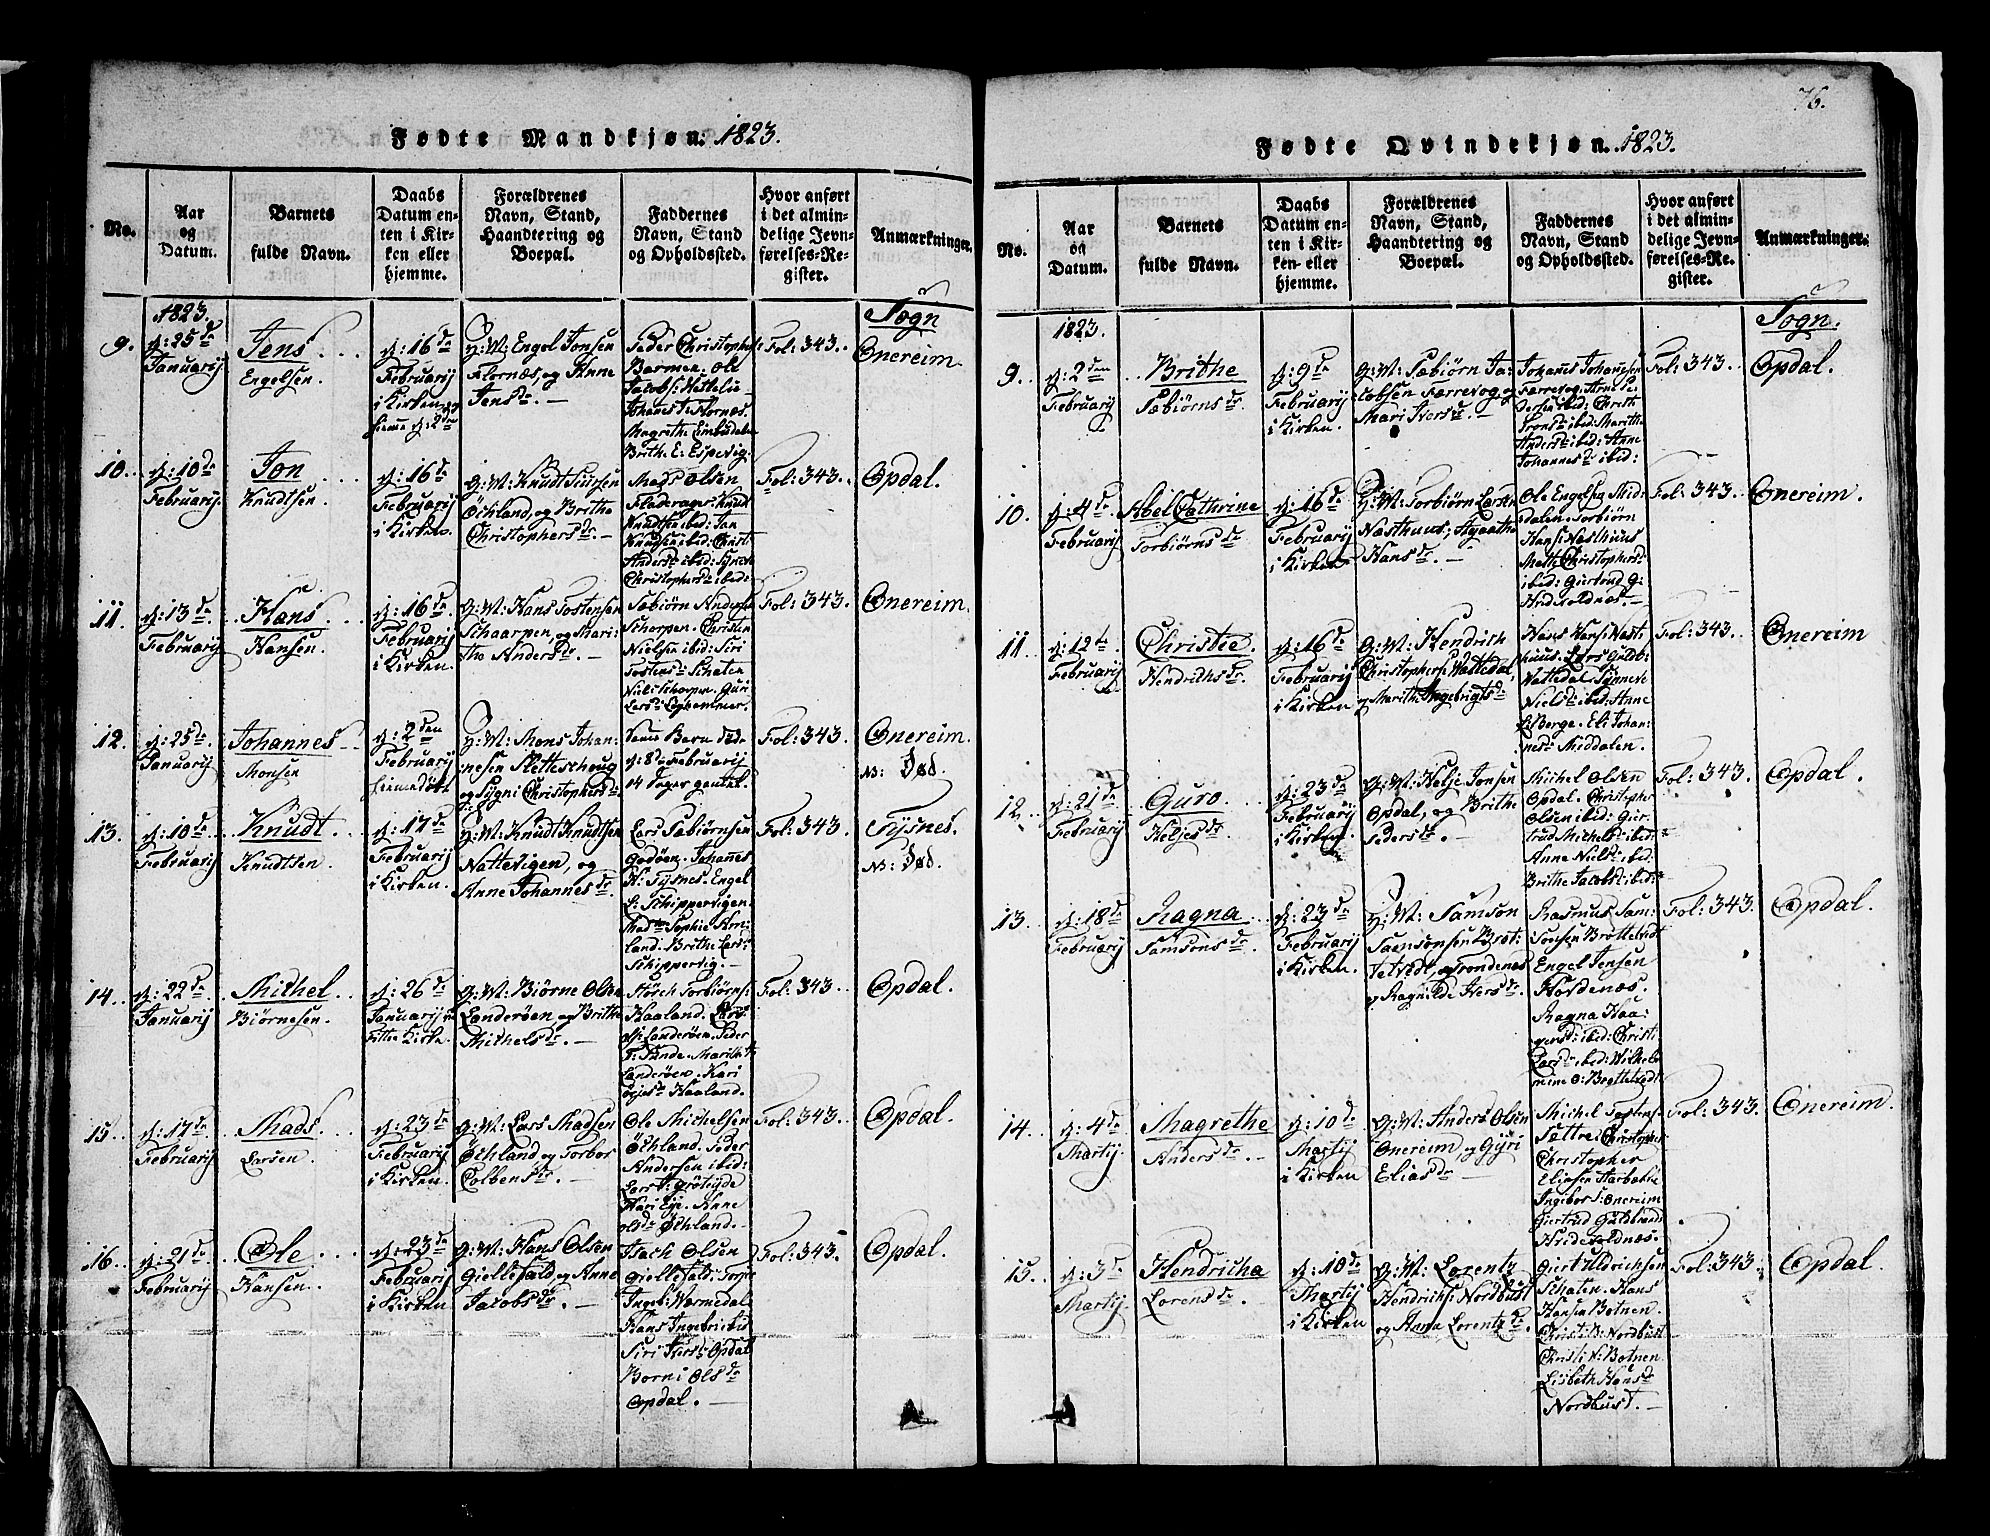 76.
Fødte Mandkjøn: 1823.
No.
Aar
og
Datum.
Barnets
fulde Navn.
Daabs
Datum en-
ten i Kir-
ken eller
hjemme.
Forældrenes
Navn, Stand,
Haandtering og
Boepæl.
Faddernes
Navn, Stand
og Opholdssted.
Hvor anført
i det almin-
delige Jevn-
førelses-Re-
gister.
Anmærkninger.
Sogn
1823.
9.
d: 25de
Januarij
Jens
Engelsen.
d: 16de
Februarij
i Kirken, og
hiema d: 2den
Æ: W: Engel Jonsen
Flornæs, og Anne
Jensdr. —
Peder Christophs:
Barmen. Ole
Jacobs:
Johanes T: Flornæs.
Magrethe
Brithe E: Espevig:
Fol: 343.
Onereim.
10.
d: 10de
Februarij
Jon
Knudtsen.
d: 16de
Februarij
i Kirken.
Æ: W: Knudt Siursen
Öchland, og Brithe
Christophersdr. —
Mads Olsen
Fladerager. Knud
Knudtsen ibid: Jan
Knudsen ibid: Christ:
Andersdr ibid: Synneve
Christophersdr ibid:
Fol: 343.
Opdal.
11.
d: 13de
Februarij
Hans
Hansen.
d: 16de
Februarij
i Kirken.
Æ: W: Hans Tostensen
Schaarpen, og Mari-
the Andersdr. —
Sæbiørn Anders:
Schorpen. Christen
Nielsen ibid: Siri
Tostensdr Schaten
Niels Schorpen. Guri
Larsdr
Fol: 343.
Onereim.
12.
d: 25de
Januarij
Johannes
Monsen
d: 2den
Februarij
hiemedøbt
Æ: W: Mons Johan-
nesen Fletteschoug
og Sygni Christophersdr
Samme Barn døde
d: 8de Februarij
14 Dager gammel.
Fol: 343.
Onereim.
NB: Død.
13.
d: 10de
Februarij
Knudt
Knudtsen.
d: 17de
Februarij
i Kirken.
Æ: W: Knudt Knudtsen
Nattevigen, og
Anne Johannesdr
Lars Sæbiørnsen
Godøen. Johanes
K: Tysnes. Engel
L: Schippervigen
Madme Sophie
land. Brithe Larsdr
Schippervig. —
Fol: 343
Tysnes.
NB: Død.
14.
d: 22de
Januarij
Michel
Biørnesen.
d: 26de
Januarij i
Fitie Kirke.
Æ: W: Biørne Olsen
Landerøen, og Brithe
Michelsdr. —
Størch Torbiørns:
Haaland. Lars
Ols: Landerøen. Peder
T: Sunde. Marithe T:
Landerøen. Kari
Haaland.
Fol: 343
Opdal.
15.
d: 17de
Februarij
Mads
Larsen.
d: 23de
Februarij
i Kirken.
Æ: W: Lars Madsen
Öchland og Torbor
Colbensdr. —
Ole Michelsen
Öchland. Peder
Andersen ibid:
Lars
Mari Eye. Anne
Olsdr Öchland. —
Fol: 343.
Opdal.
16.
d: 21de
Februarij
Ole
Hansen.
d: 23de
Februarij
i Kirken
Æ: W: Hans Olsen
Giellefald, og Anne
Jacobsdr. —
Isach Olsen
Giellefald. Torje
Ingeb: Vermedal
Hans Ingebricts:
Siri Iversdr Opdal
Borni Olsdr
Opdal. —
Fol: 343.
Opdal.
Fødte Qvindekjøn. 1823.
No.
Aar
og
Datum.
Barnets
fulde Navn.
Daabs
Datum en-
ten i Kir-
ken eller
hjemme.
Forældrenes
Navn, Stand,
Haandtering og
Boepæl.
Faddernes
Navn, Stand
og Opholdssted.
Hvor anført
i det almin-
delige Jevn-
førelses-Re-
gister.
Anmærkninger.
Sogn.
1823.
9.
d: 2den
Februarij
Brithe
Sæbiørnsdr.
d: 9de
Februarij
i Kirken.
Æ: W: Sæbiørn Ja-
cobsen Færrevog og
Mari Iversdr. —
Johanes Johannesen
Færrevog. Arne Pe-
dersen ibid: Brith
Tronsdr ibid: Marithe
Andersdr ibid: Anne
Johannesdr ibid:
Fol: 343
Opdal.
10.
d: 4de
Februarij
Abel Cathrine
Torbiørnsdr
d: 16de
Februarij
i Kirken
Æ: W: Torbiørn Larsen
Næsthuus, Agaathe
Hansdr. —
Ole Engelsen Mid-
dalen. Torbiørn
Hans: Næsthuus
Mette Christophersdr
ibid: Giertrud G:
Hvidevoldnæs. —
Fol: 343.
Onereim.
11.
d: 12te
Februarij
Christie.
Hendrichsdr.
d: 16de
Februarij
i Kirken
Æ: W: Hendrich
Christophersen Vattedal,
og Marithe Ingebrigtsdr
Hans Hans: Næst-
huus. Lars Guldb:
Vattedal. Synneve
Nielsdr ibid: Anne
L: Berge. Eli Johan-
nesdr Middalen.
Fol: 343.
Onereim
12.
d: 21de
Februarij
Guro.
Heljesdr.
d: 23de
Februarij
i Kirken.
Æ: W: Helje Jonsen
Opdal, og Brithe
Pedersdr. —
Michel Olsen
Opdal. Christopher
Olsen ibid: Gier-
trud Michelsdr ibid:
Anne Nielsdr ibid:
Brithe Jacobsdr ibid:
Fol: 343
Opdal.
13.
d: 18de
Februarij
Ragna
Samsonsdr
d: 23de
Februarij
i Kirken.
Æ: W: Samson
Samsonsen Brot-
tetvedt, og Trondenes
og Ragnilde Iversdr. —
Rasmus Sam-
sonsen Brottetvedt
Engel Jensen
Hovdenæs.
Ragna Haa-
versdr ibid: Christi
Larsdr ibid: Wilhel-
mine O: Brottetvedt
Fol: 343.
Opdal.
14.
d: 4de
Martij
Magrethe
Andersdr. —
d: 10de
Martij
i Kirken
Æ: W: Anders Olsen
Onereim, og Gyri
Eliasdr —
Michel Tostens:
Sættre. Christopher
Christopher
Eliasen
Ingebor S: Onereim
Giertrud Guldbrands
Hvidevoldnæs.
Fol: 343.
Onereim.
15.
d: 3de
Martij.
Hendricha
Lorensdr. —
d: 10de
Martij
i Kirken
Æ: W: Lorentz
Hendrichs: Nordbust
og Anna Lorentzdr. —
Giert Uldrichsen
Schaten. Hans
Hansen Botnen.
Christi B: Nordbust
Christi N: Botnen
Lisbeth Hansdr
Nordbust. —
Fol: 343.
Opdal.